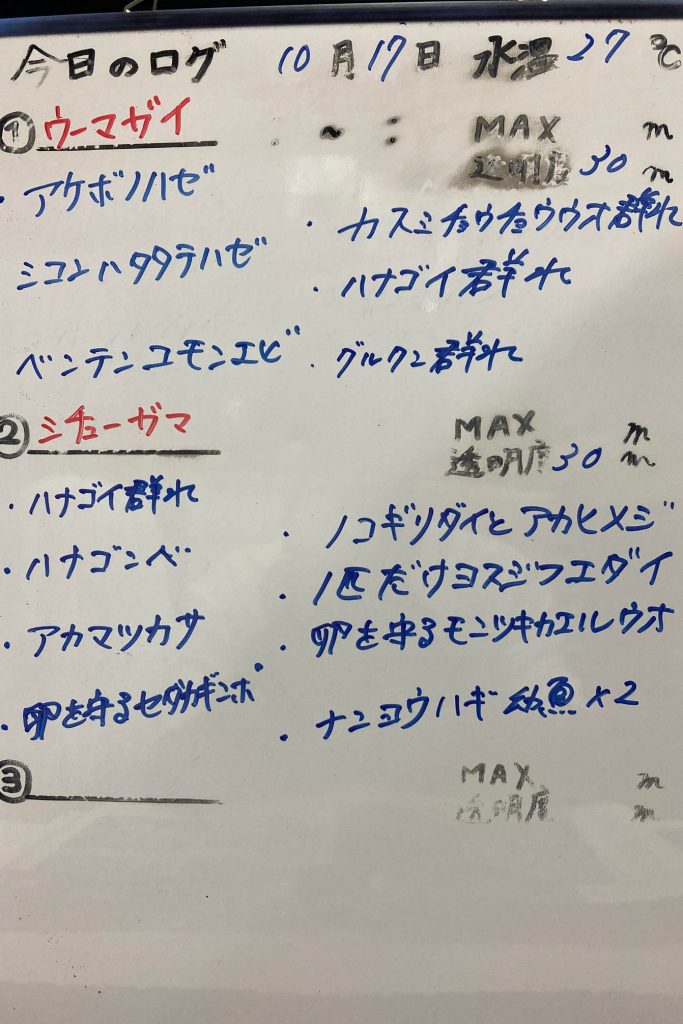 今日のログ 10月17日 水温 27 ℃
① ウーマガイ : ~ : MAX m
透明度 30 m
・アケボノハゼ
シコンハタタテハゼ
ベンテンコモンエビ
・カスミチョウチョウウオ群れ
・ハナゴイ群れ
・グルクン群れ
② シチューガマ MAX m
透明度 30 m
・ハナゴイ群れ
・ハナゴンベ
・アカマツカサ
・卵を守るセダカギンポ
・ノコギリダイとアカヒメジ
・1匹だけヨスジフエダイ
・卵を守るモンツキカエルウオ
・ナンヨウハギ幼魚×2
③ MAX m
透明度 m